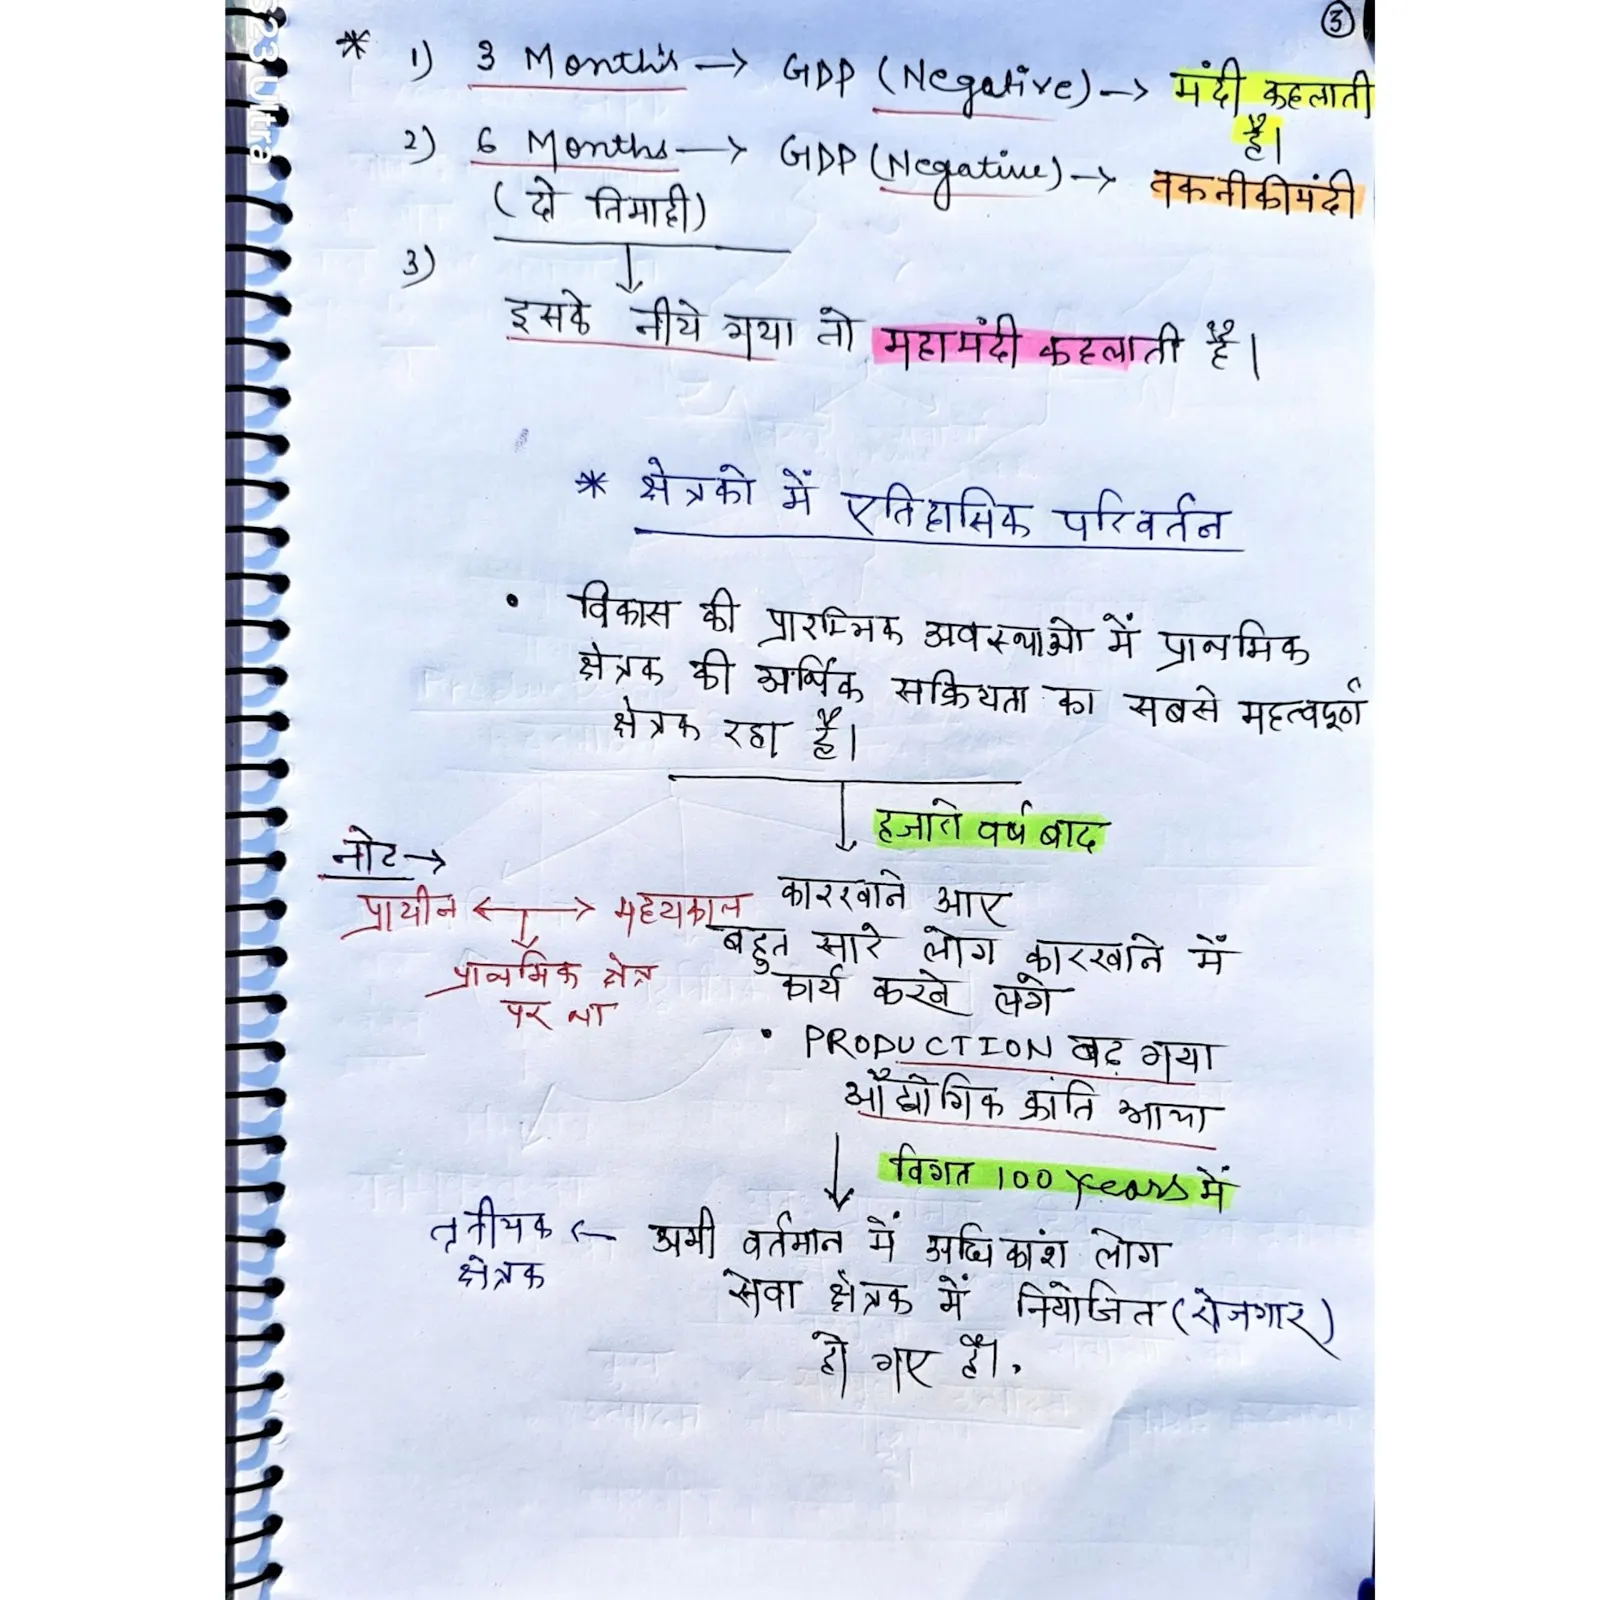 ③
* 1) 3 Month's → GDP (Negative) → मंदी कहलाती
है।
2) 6 Months → GDP (Negative) → तकनीकी मंदी
(दो तिमाही)
3)
इसके नीचे गया तो महामंदी कहलाती है।
* क्षेत्रको में एतिहासिक परिवर्तन
• विकास की प्रारम्भिक अवस्थाओ में प्राथमिक
क्षेत्रक की आर्थिक सक्रियता का सबसे महत्वपूर्ण
क्षेत्रक रहा है।
हजारो वर्ष बाद
नोट →
प्राचीन ← → मध्यकाल
प्राथमिक क्षेत्र
पर था
कारखाने आए
बहुत सारे लोग कारखाने में
कार्य करने लगे
• PRODUCTION बढ़ गया
औद्योगिक क्रांति आया
विगत 100 years में
तृतीयक ← अभी वर्तमान में अधिकांश लोग
क्षेत्रक
सेवा क्षेत्रक में नियोजित (रोजगार)
हो गए है।
S23 Ultra